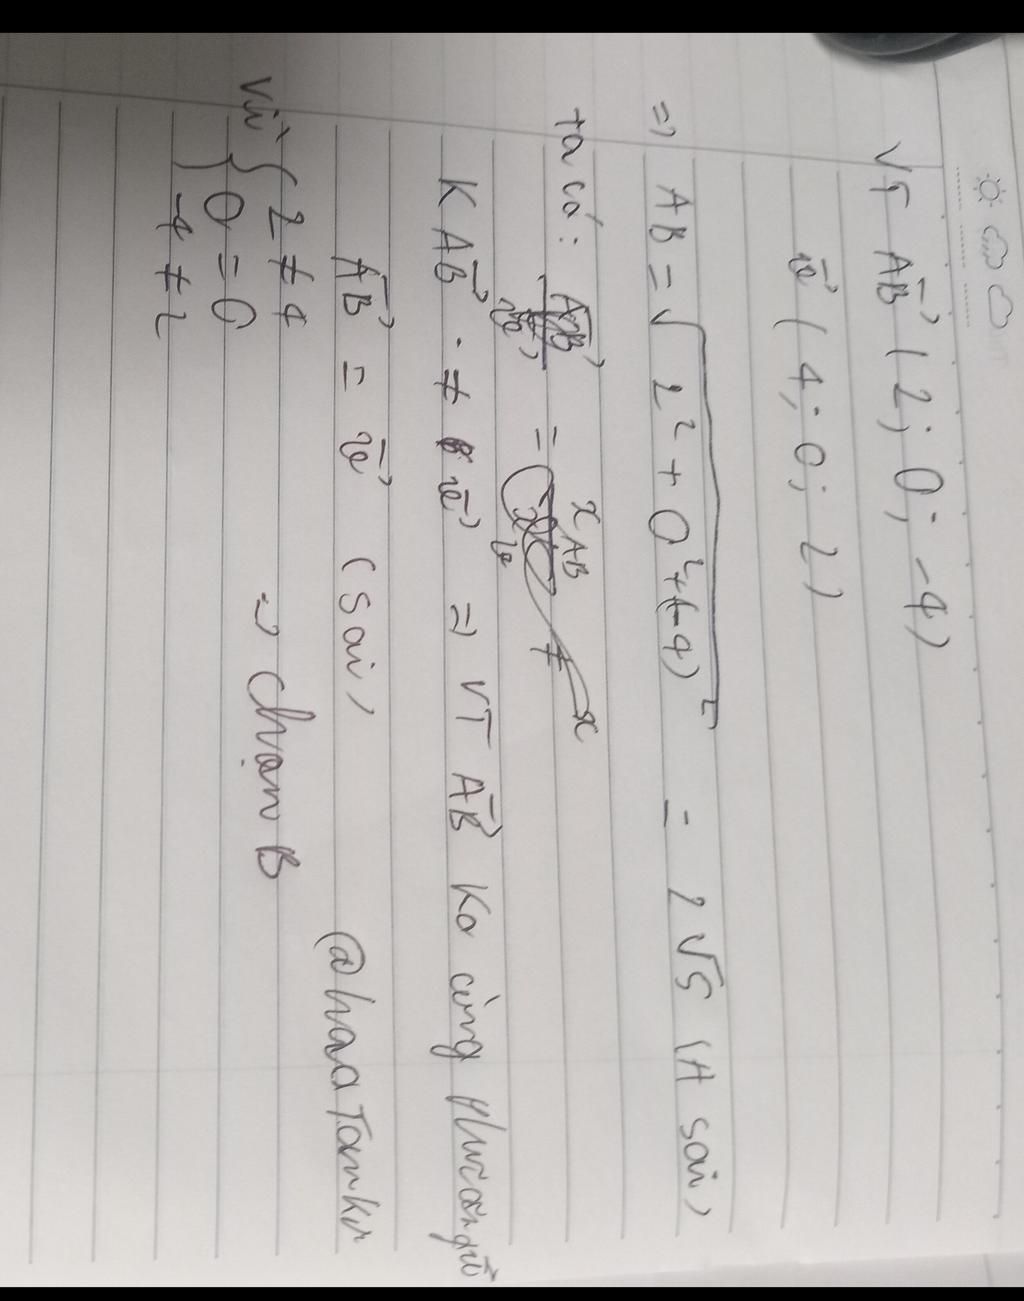 VT AB→ (2; 0; -4)
u→ (4; 0; 2)
=> AB = √2² + 0² + (-4)² = 2√5 (A sai)
ta có: = x AB ≠ x
K AB→ ≠ u→ => VT AB→ ko cùng phương
AB→ = u→ (sai)
Vì { 2 ≠ 4
0 = 0
-4 ≠ 2
=> chọn B
@haaTomkin